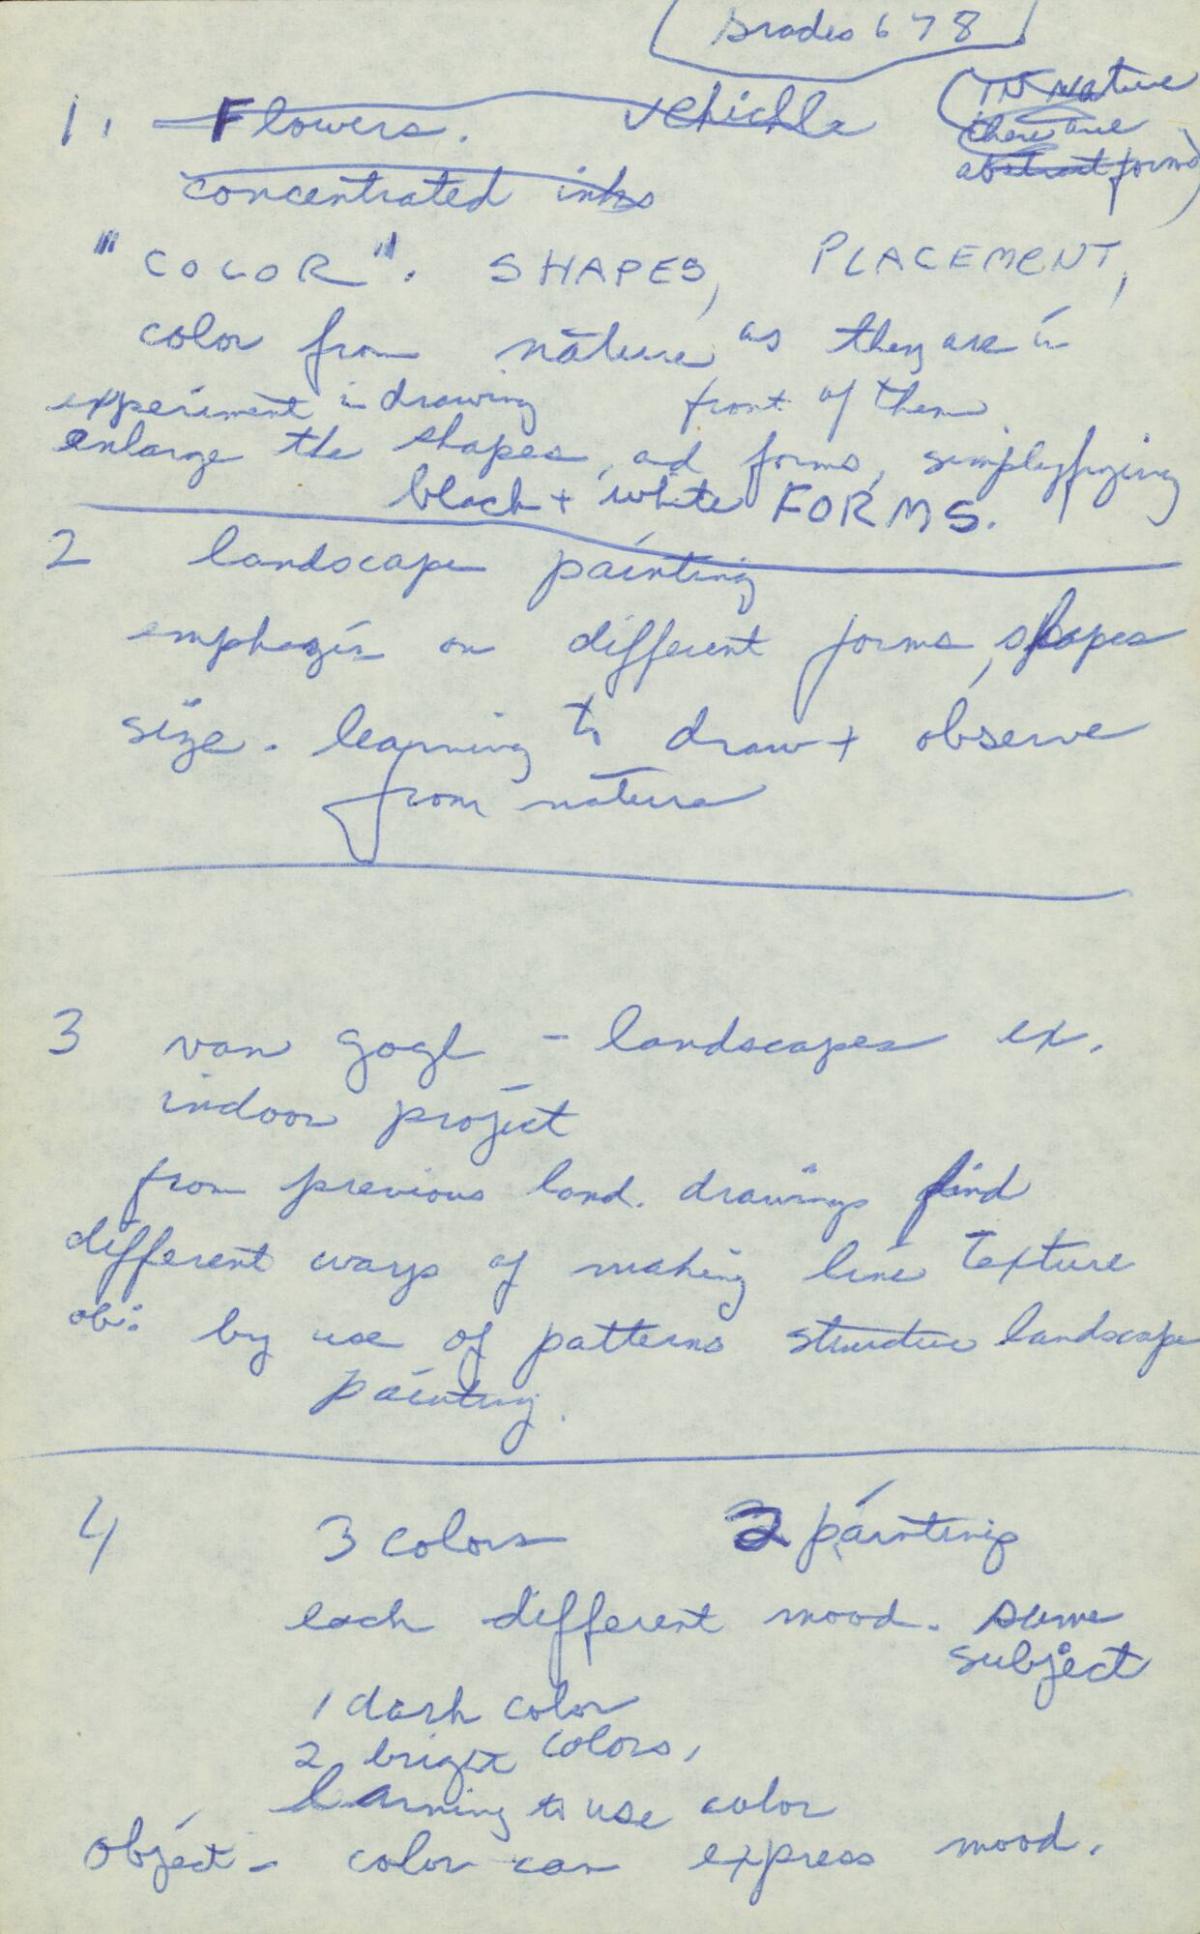 Grades 6 7 8
1. Flowers. vehichle
(IN Nature
there are
abstract forms)
concentrated inks
"COLOR". SHAPES, PLACEMENT,
color from nature as they are in
experiment in drawing front of them
enlarge the shapes, ad forms, simplyfying
black + white FORMS.
2 landscape painting
emphazis on different forms, shapes
size. learning to draw + observe
from nature
3 van gogh - landscapes ex.
indoor project
from previous land. drawings find
different ways of making line texture
ob: by use of patterns structure landscape
painting.
4 3 colors 2 paintings
each different mood. same
subject
1 dark color
2 bright colors,
learning to use color
object - color can express mood.